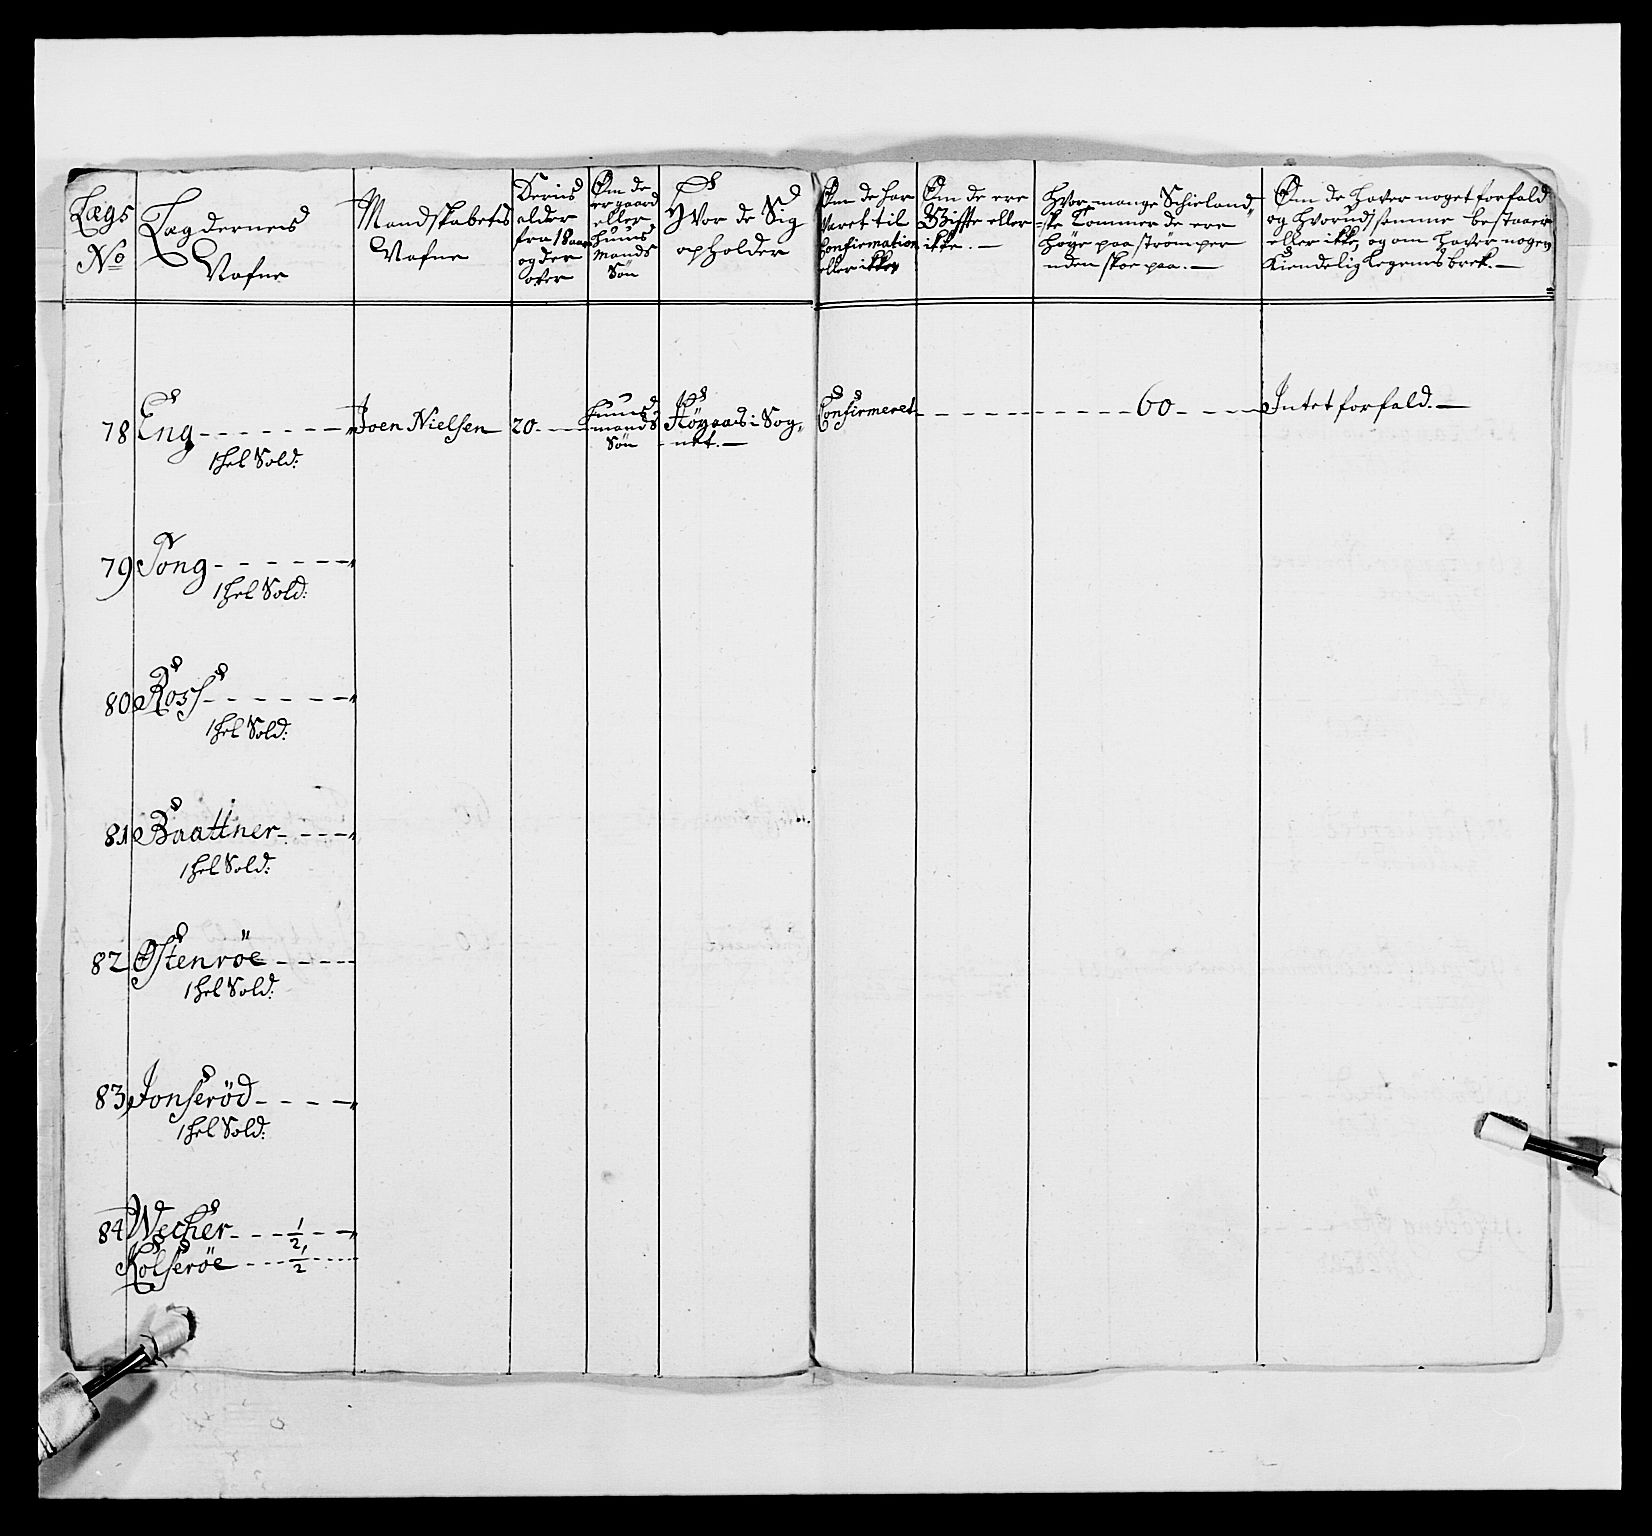 Lægs
No
Lægdernes
Nafne
Mandskabets
Nafne
Deris
alder
fra 18 aar
og der
over
Om de
er gaard
eller
Huus
Mands
Søn
Hvor de Sig
opholder
Om de har
været til
Confirmation
eller ikke
Om de ere
Giffte eller
ikke. —
Hvor mange Schieland„
ske Tommer de ere
høye paa strømper
uden skoe paa. —
Om de haver noget forfald
og hvorudj samme bestaaer
eller ikke, og om haver nogen
Kiendelig Legems brek. —
78 Eng
1 hel Sold:
Joen Nielsen
20
Huus
mands
Søn
Høyaas i Sog„
net. —
Confirmeret
60
Intet forfald. —
79 Tong
1 hel Sold:
80 Ross
1 hel Sold:
81 Baattner
1 hel Sold:
82 Østenröe
1 hel Sold:
83 Jonseröd
1 hel Sold:
84 Wecher 1/2
Kolseröe 1/2